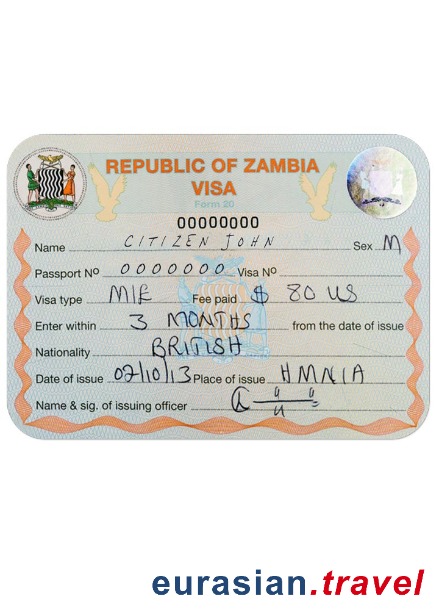 REPUBLIC OF ZAMBIA
VISA
Form 20
00000000
Name CITIZEN JOHN Sex M
Passport Nº 0000000 Visa Nº
Visa type MIE Fee paid $ 80 US
Enter within 3 MONTHS from the date of issue
Nationality BRITISH
Date of issue 02/10/13 Place of issue HMNIA
Name & sig. of issuing officer
eurasian.travel